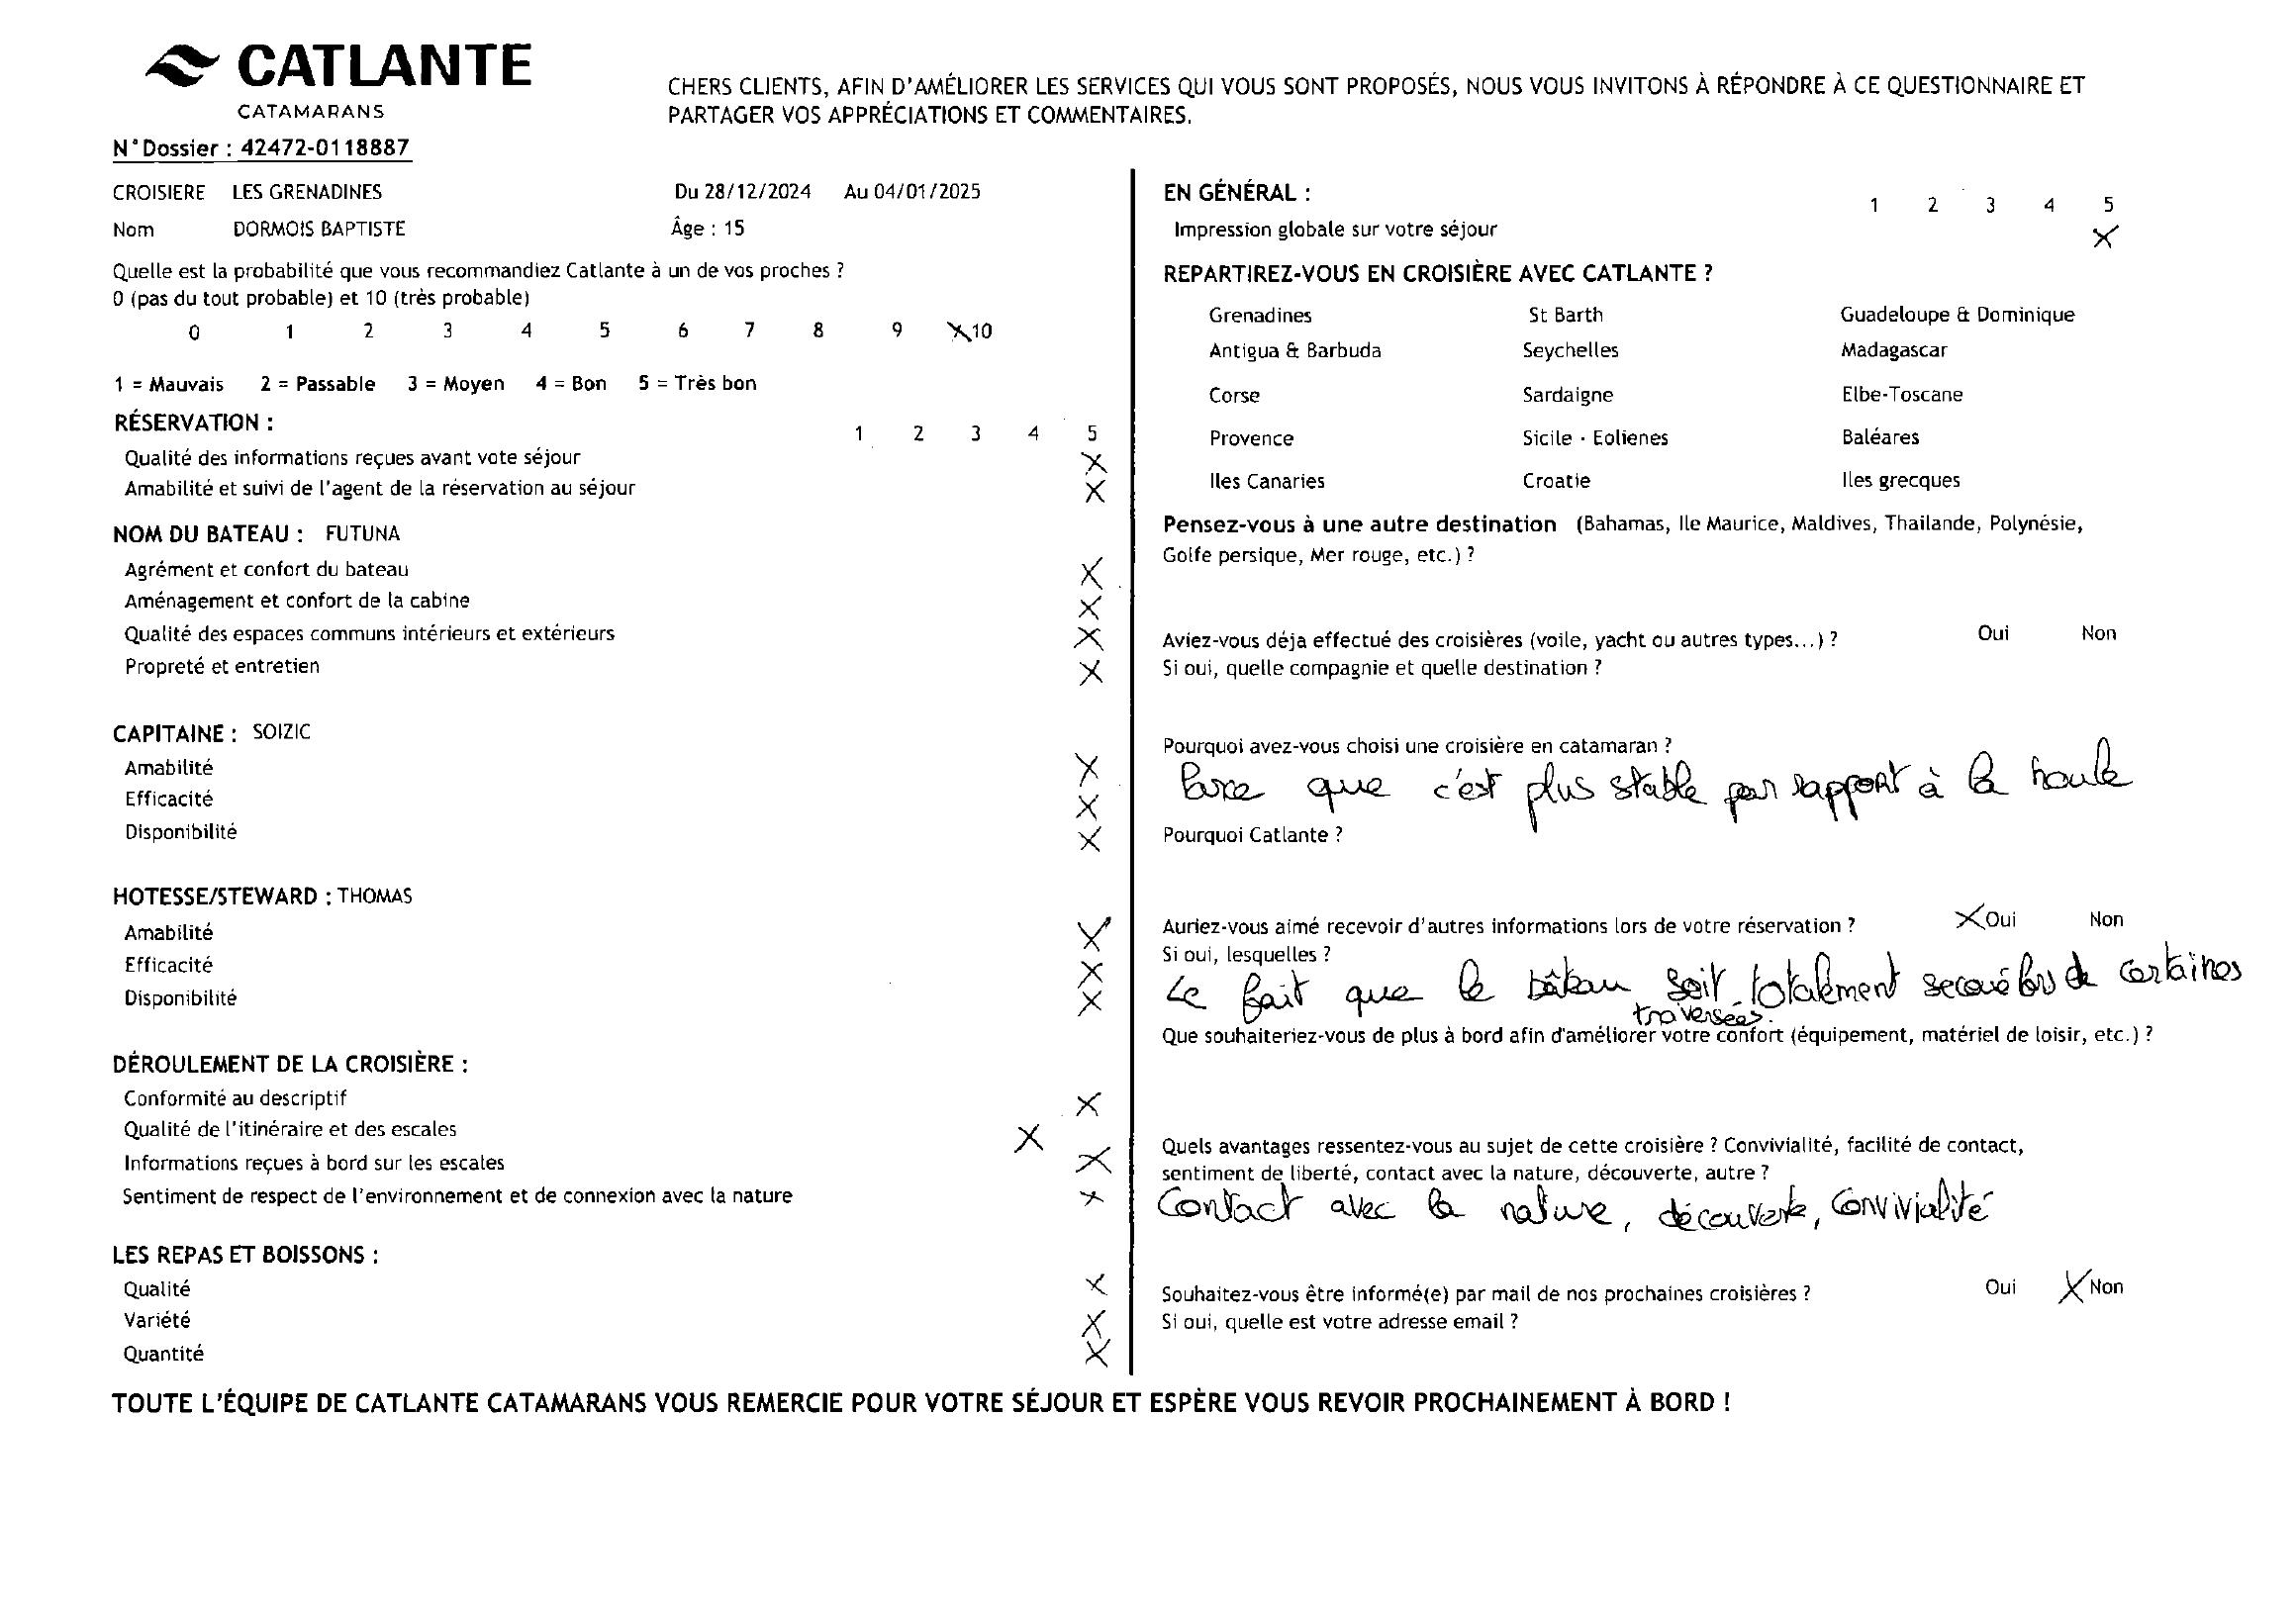 CATLANTE
CATAMARANS
CHERS CLIENTS, AFIN D'AMÉLIORER LES SERVICES QUI VOUS SONT PROPOSÉS, NOUS VOUS INVITONS À RÉPONDRE À CE QUESTIONNAIRE ET
PARTAGER VOS APPRÉCIATIONS ET COMMENTAIRES.
N°Dossier : 42472-0118887
CROISIERE LES GRENADINES Du 28/12/2024 Au 04/01/2025
Nom DORMOIS BAPTISTE Âge : 15
Quelle est la probabilité que vous recommandiez Catlante à un de vos proches ?
0 (pas du tout probable) et 10 (très probable)
0 1 2 3 4 5 6 7 8 9 X 10
1 = Mauvais 2 = Passable 3 = Moyen 4 = Bon 5 = Très bon
RÉSERVATION :
1 2 3 4 5
Qualité des informations reçues avant vote séjour X
Amabilité et suivi de l'agent de la réservation au séjour X
NOM DU BATEAU : FUTUNA
Agrément et confort du bateau X
Aménagement et confort de la cabine X
Qualité des espaces communs intérieurs et extérieurs X
Propreté et entretien X
CAPITAINE : SOIZIC
Amabilité X
Efficacité X
Disponibilité X
HOTESSE/STEWARD : THOMAS
Amabilité X
Efficacité X
Disponibilité X
DÉROULEMENT DE LA CROISIÈRE :
Conformité au descriptif X
Qualité de l'itinéraire et des escales X
Informations reçues à bord sur les escales X
Sentiment de respect de l'environnement et de connexion avec la nature X
LES REPAS ET BOISSONS :
Qualité X
Variété X
Quantité X
EN GÉNÉRAL :
1 2 3 4 5
Impression globale sur votre séjour X
REPARTIREZ-VOUS EN CROISIÈRE AVEC CATLANTE ?
Grenadines St Barth Guadeloupe & Dominique
Antigua & Barbuda Seychelles Madagascar
Corse Sardaigne Elbe-Toscane
Provence Sicile - Eolienes Baléares
Iles Canaries Croatie Iles grecques
Pensez-vous à une autre destination (Bahamas, Ile Maurice, Maldives, Thailande, Polynésie,
Golfe persique, Mer rouge, etc.) ?
Aviez-vous déja effectué des croisières (voile, yacht ou autres types...) ? Oui Non
Si oui, quelle compagnie et quelle destination ?
Pourquoi avez-vous choisi une croisière en catamaran ?
Parce que c'est plus stable par rapport à la houle
Pourquoi Catlante ?
Auriez-vous aimé recevoir d'autres informations lors de votre réservation ? X Oui Non
Si oui, lesquelles ?
Le fait que le bâteau soit totalement secoué lors de certaines
traversées.
Que souhaiteriez-vous de plus à bord afin d'améliorer votre confort (équipement, matériel de loisir, etc.) ?
Quels avantages ressentez-vous au sujet de cette croisière ? Convivialité, facilité de contact,
sentiment de liberté, contact avec la nature, découverte, autre ?
Contact avec la nature, découverte, convivialité
Souhaitez-vous être informé(e) par mail de nos prochaines croisières ? Oui X Non
Si oui, quelle est votre adresse email ?
TOUTE L'ÉQUIPE DE CATLANTE CATAMARANS VOUS REMERCIE POUR VOTRE SÉJOUR ET ESPÈRE VOUS REVOIR PROCHAINEMENT À BORD !